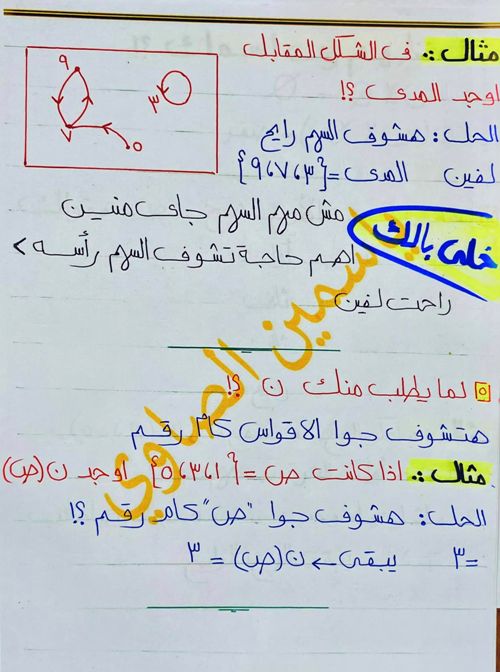 مثال:. فى الشكل المقابل
اوجد المدى ؟!
الحل: هشوف السهم رايح
لفين المدى = {٣،٧،٩}
٩
٣
٧
٥
خلى بالك
مش مهم السهم جاى منين
اهم حاجة تشوف السهم رأسه >
راحت لفين
ياسمين الصاوي
٥ لما يطلب منك ن ؟!
هتشوف جوا الاقواس كام رقم
مثال:. اذا كانت ص = {١،٣،٥} اوجد ن(ص)
الحل: هشوف جوا "ص" كام رقم ؟!
=٣ يبقى ← ن(ص) = ٣